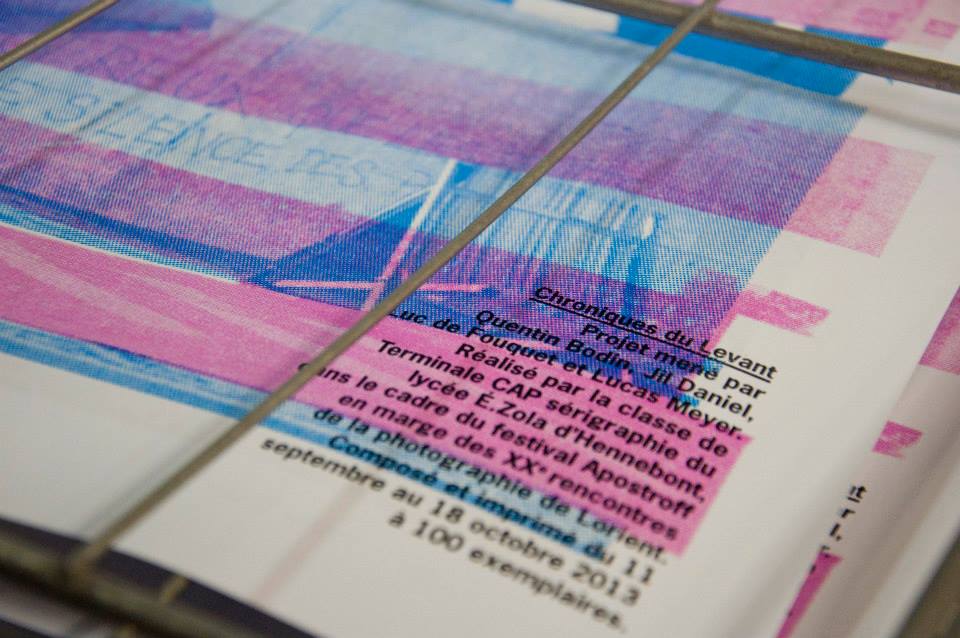 SILENCE DES
Chroniques du Levant
Projet mené par
Quentin Bodin, Jil Daniel,
Luc de Fouquet et Lucas Meyer.
Réalisé par la classe de
Terminale CAP sérigraphie du
lycée É.Zola d'Hennebont,
dans le cadre du festival Apostroff
en marge des XXᵉ rencontres
de la photographie de Lorient.
Composé et imprimé du 11
septembre au 18 octobre 2013
à 100 exemplaires.